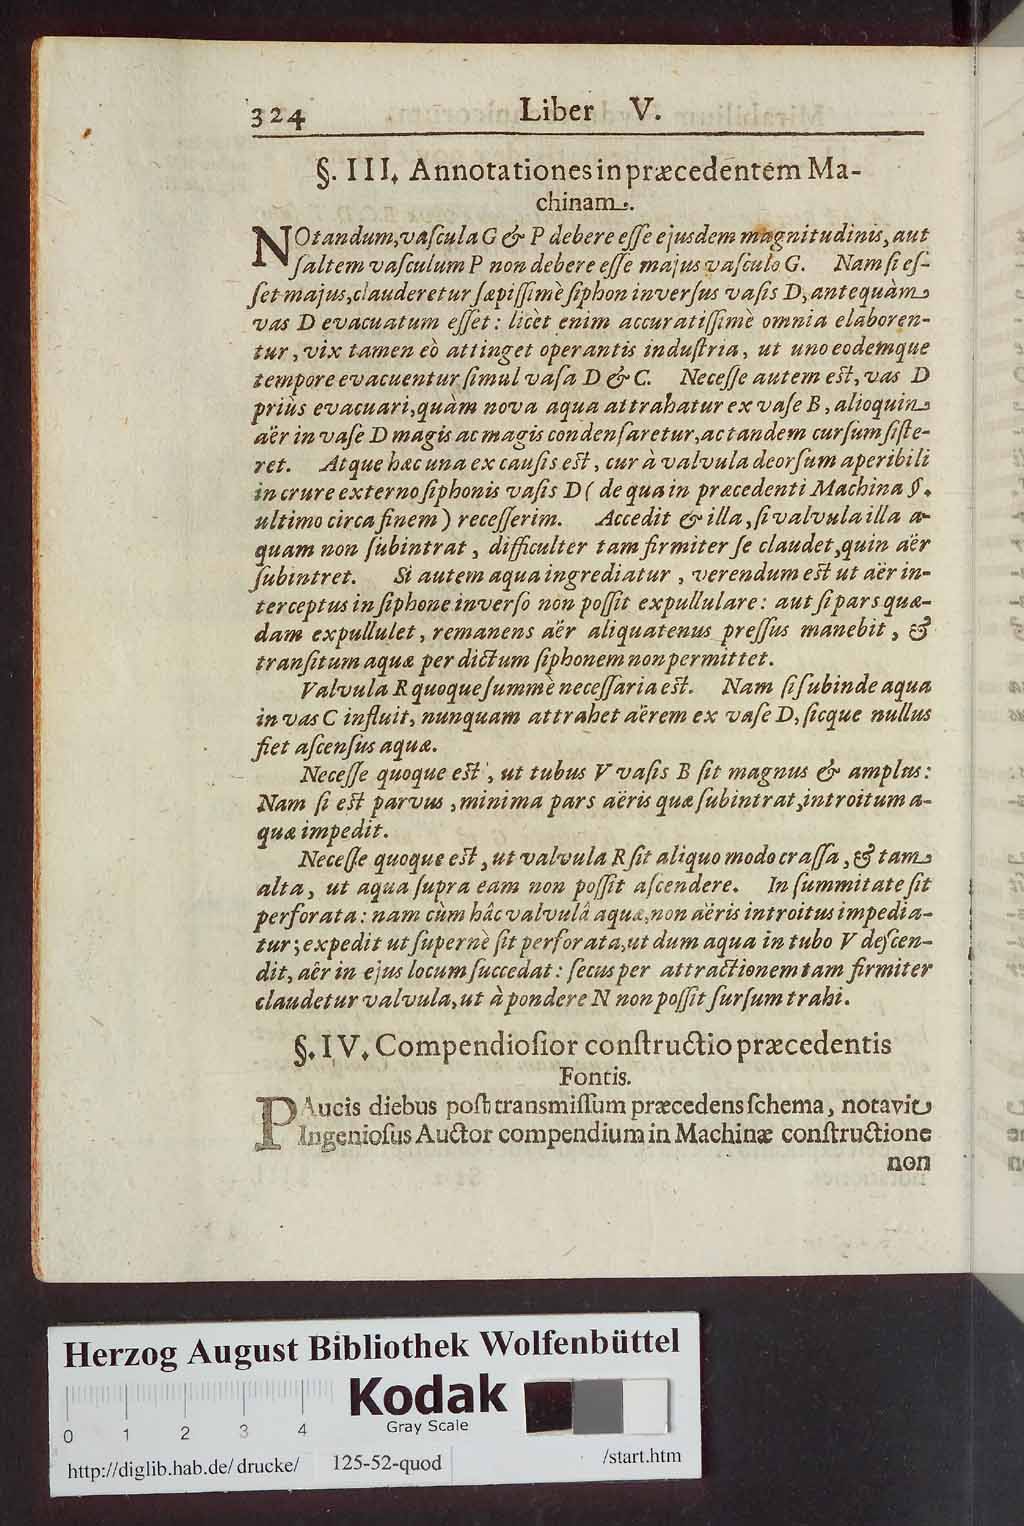 324 Liber V.
§. III. Annotationes in præcedentem Ma-
chinam.
NOtandum, vaſcula G & P debere eſſe ejusdem magnitudinis, aut
ſaltem vaſculum P non debere eſſe majus vaſculo G. Nam ſi eſ-
ſet majus, clauderetur ſæpiſſimè ſiphon inverſus vaſis D, antequàm
vas D evacuatum eſſet: licèt enim accuratiſſimè omnia elaboren-
tur, vix tamen eò attinget operantis induſtria, ut uno eodemque
tempore evacuentur ſimul vaſa D & C. Neceſſe autem eſt, vas D
priùs evacuari, quàm nova aqua attrahatur ex vaſe B, alioquin
aër in vaſe D magis ac magis condenſaretur, ac tandem curſum ſiſte-
ret. Atque hæc una ex cauſis eſt, cur à valvula deorſum aperibili
in crure externo ſiphonis vaſis D (de qua in præcedenti Machina §.
ultimo circa finem) receſſerim. Accedit & illa, ſi valvula illa a-
quam non ſubintrat, difficulter tam firmiter ſe claudet, quin aër
ſubintret. Si autem aqua ingrediatur, verendum eſt ut aër in-
terceptus in ſiphone inverſo non poſſit expullulare: aut ſi pars quæ-
dam expullulet, remanens aër aliquatenus preſſus manebit, &
tranſitum aquæ per dictum ſiphonem non permittet.
Valvula R quoque ſummè neceſſaria eſt. Nam ſi ſubinde aqua
in vas C influit, nunquam attrahet aërem ex vaſe D, ſicque nullus
fiet aſcenſus aquæ.
Neceſſe quoque eſt, ut tubus V vaſis B ſit magnus & amplus:
Nam ſi eſt parvus, minima pars aëris quæ ſubintrat, introitum a-
quæ impedit.
Neceſſe quoque eſt, ut valvula R ſit aliquo modo craſſa, & tam
alta, ut aqua ſupra eam non poſſit aſcendere. In ſummitate ſit
perforata: nam cùm hâc valvulâ aquæ, non aëris introitus impedia-
tur; expedit ut ſupernè ſit perforata, ut dum aqua in tubo V deſcen-
dit, aër in ejus locum ſuccedat: ſecus per attractionem tam firmiter
claudetur valvula, ut à pondere N non poſſit ſurſum trahi.
§. IV. Compendioſior conſtructio præcedentis
Fontis.
PAucis diebus poſt transmiſſum præcedens ſchema, notavit
Ingenioſus Auctor compendium in Machinæ conſtructione
non
Herzog August Bibliothek Wolfenbüttel
Kodak
Gray Scale
0 1 2 3 4
http://diglib.hab.de/drucke/ 125-52-quod /start.htm